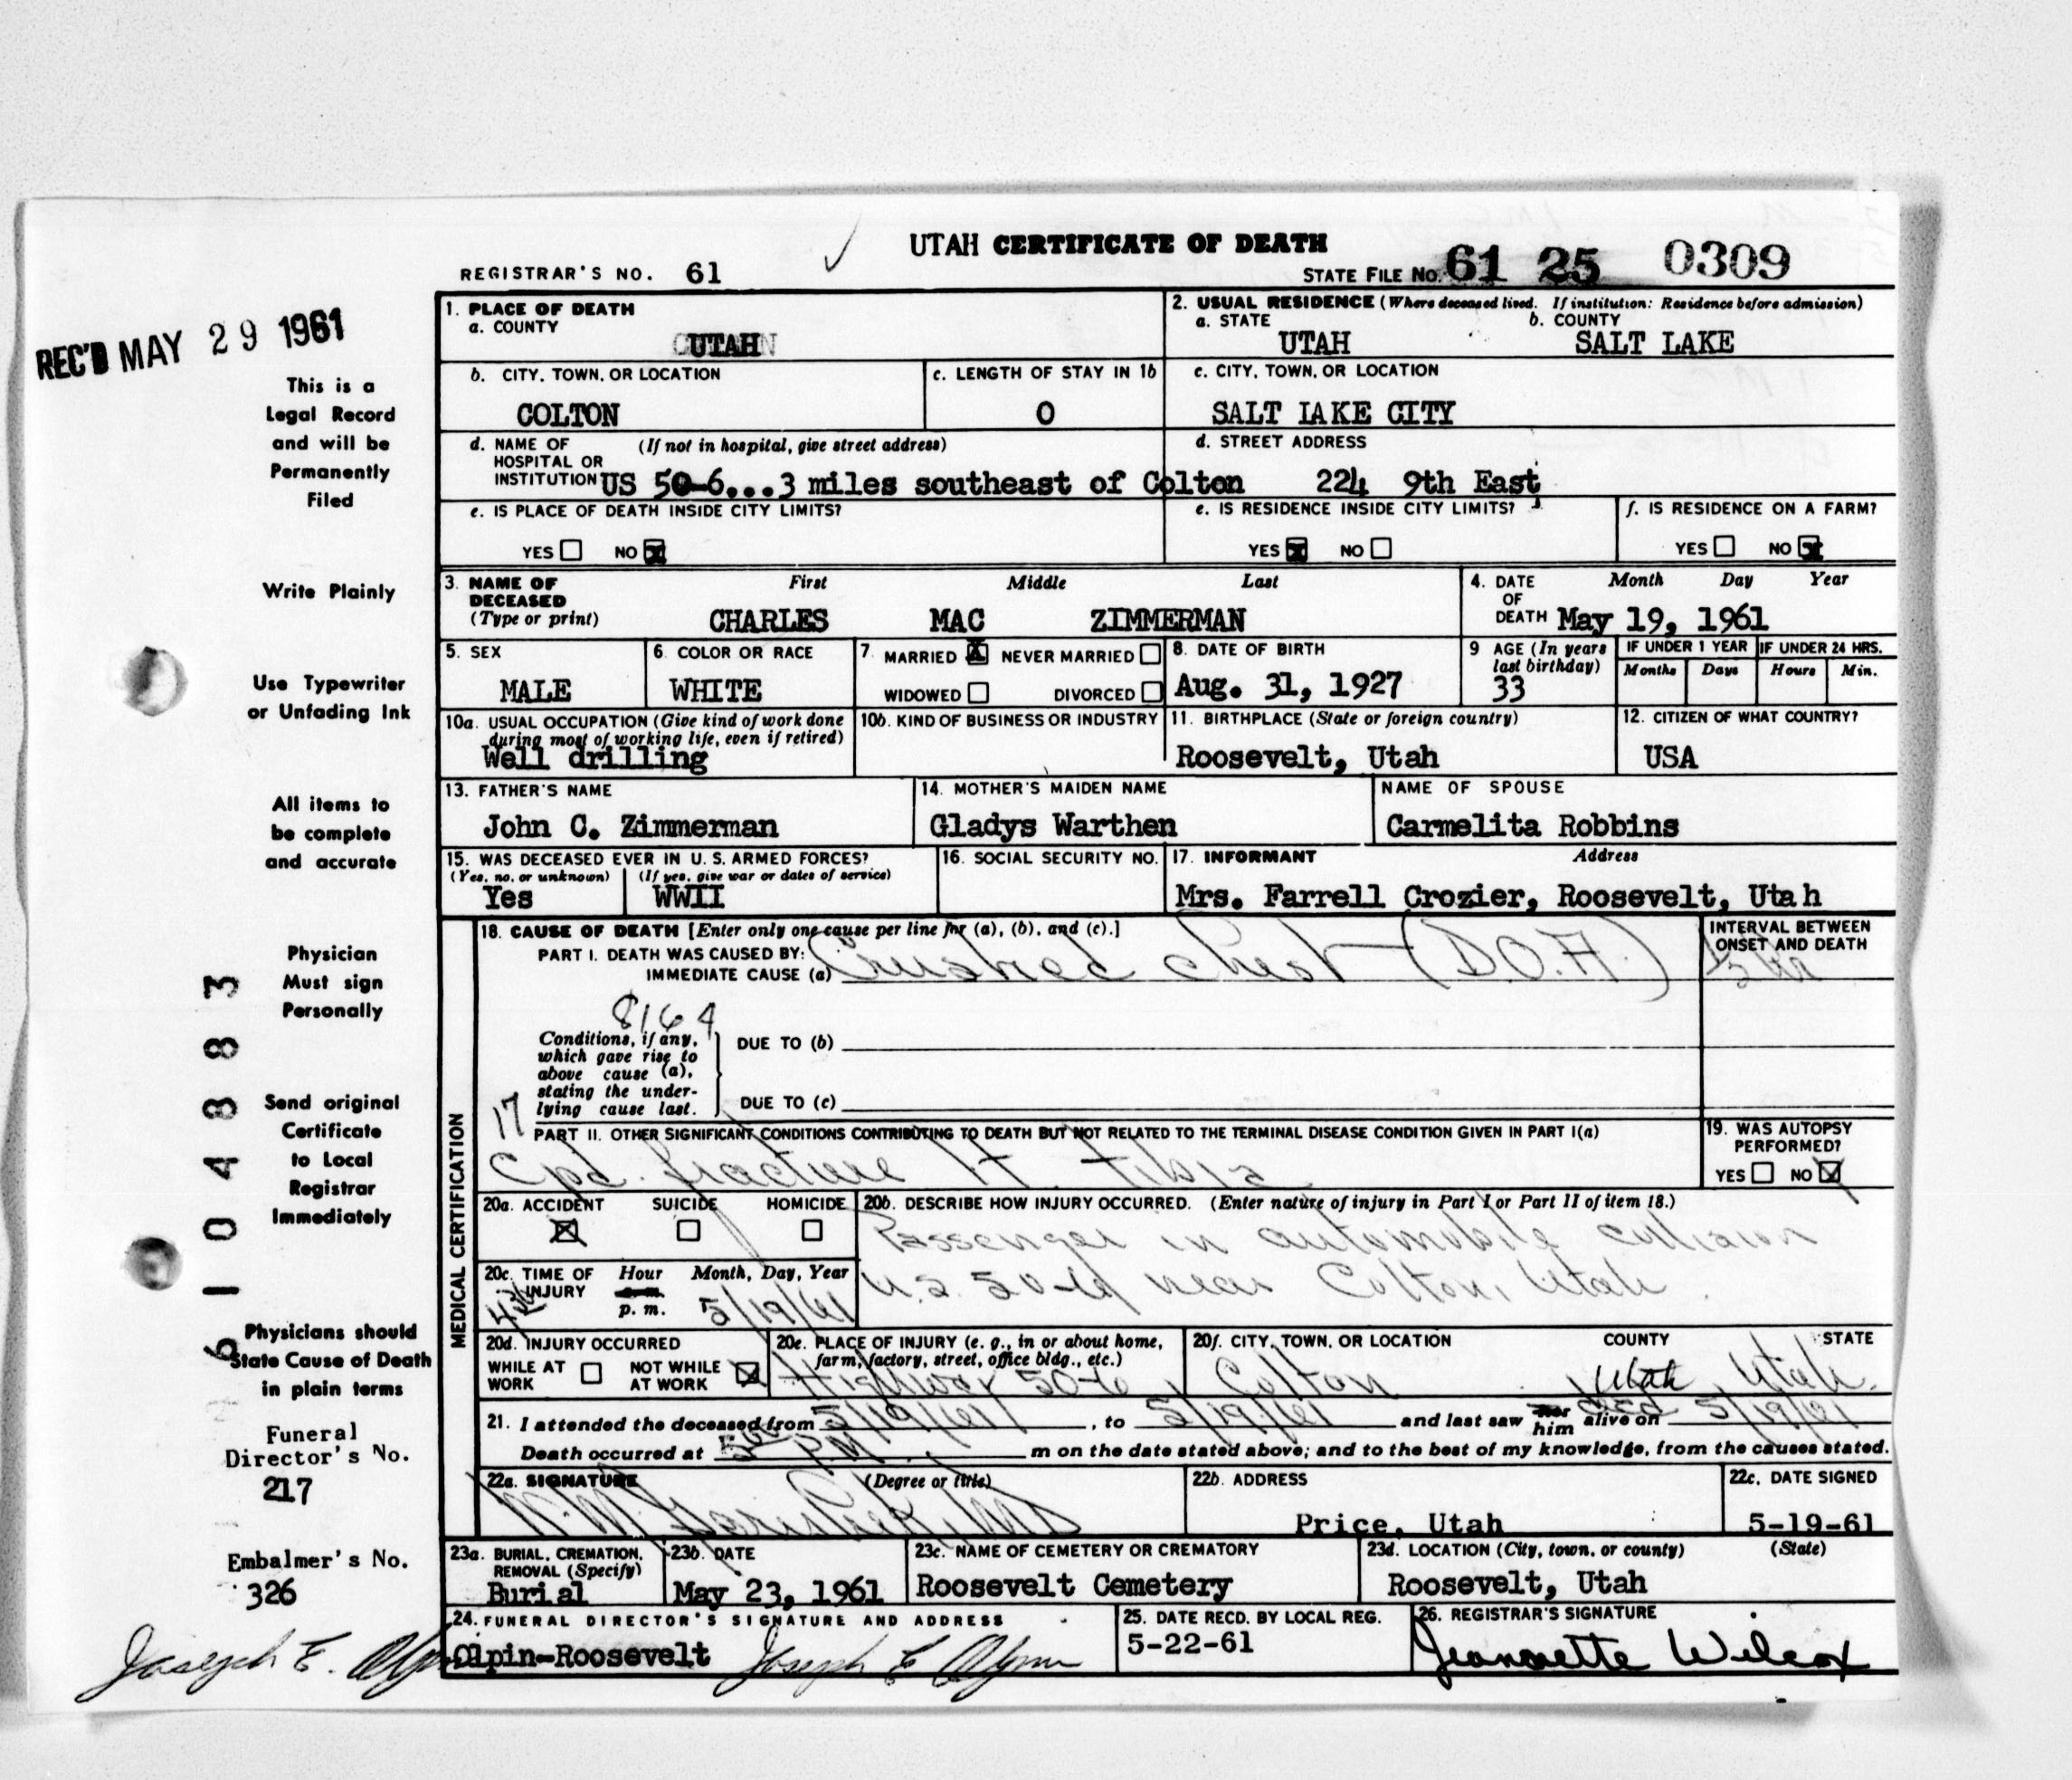 UTAH CERTIFICATE OF DEATH
REGISTRAR'S NO. 61
STATE FILE No. 61 25 0309
REC'D MAY 29 1961
This is a
Legal Record
and will be
Permanently
Filed
Write Plainly
Use Typewriter
or Unfading Ink
All items to
be complete
and accurate
Physician
Must sign
Personally
Send original
Certificate
to Local
Registrar
Immediately
Physicians should
State Cause of Death
in plain terms
Funeral
Director's No.
217
Embalmer's No.
326
Joseph E. Olpin
61 04883
1. PLACE OF DEATH
a. COUNTY
UTAH
2. USUAL RESIDENCE (Where deceased lived. If institution: Residence before admission)
a. STATE b. COUNTY
UTAH SALT LAKE
b. CITY, TOWN, OR LOCATION
COLTON
c. LENGTH OF STAY IN 1b
0
c. CITY, TOWN, OR LOCATION
SALT LAKE CITY
d. NAME OF (If not in hospital, give street address)
HOSPITAL OR
INSTITUTION US 50-6...3 miles southeast of Colton
d. STREET ADDRESS
224 9th East
e. IS PLACE OF DEATH INSIDE CITY LIMITS?
YES NO X
e. IS RESIDENCE INSIDE CITY LIMITS?
YES X NO
f. IS RESIDENCE ON A FARM?
YES NO X
3. NAME OF First Middle Last
DECEASED
(Type or print) CHARLES MAC ZIMMERMAN
4. DATE Month Day Year
OF
DEATH May 19, 1961
5. SEX
MALE
6. COLOR OR RACE
WHITE
7. MARRIED X NEVER MARRIED
WIDOWED DIVORCED
8. DATE OF BIRTH
Aug. 31, 1927
9 AGE (In years
last birthday)
33
IF UNDER 1 YEAR
Months Days
IF UNDER 24 HRS.
Hours Min.
10a. USUAL OCCUPATION (Give kind of work done
during most of working life, even if retired)
Well drilling
10b. KIND OF BUSINESS OR INDUSTRY
11. BIRTHPLACE (State or foreign country)
Roosevelt, Utah
12. CITIZEN OF WHAT COUNTRY?
USA
13. FATHER'S NAME
John C. Zimmerman
14. MOTHER'S MAIDEN NAME
Gladys Warthen
NAME OF SPOUSE
Carmelita Robbins
15. WAS DECEASED EVER IN U. S. ARMED FORCES?
(Yes, no, or unknown) (If yes, give war or dates of service)
Yes WWII
16. SOCIAL SECURITY NO.
17. INFORMANT Address
Mrs. Farrell Crozier, Roosevelt, Utah
MEDICAL CERTIFICATION
18. CAUSE OF DEATH [Enter only one cause per line for (a), (b), and (c).]
PART I. DEATH WAS CAUSED BY:
IMMEDIATE CAUSE (a) Crushed chest (D.O.A.)
INTERVAL BETWEEN
ONSET AND DEATH
8164
Conditions, if any,
which gave rise to
above cause (a),
stating the under-
lying cause last.
DUE TO (b)
DUE TO (c)
17
PART II. OTHER SIGNIFICANT CONDITIONS CONTRIBUTING TO DEATH BUT NOT RELATED TO THE TERMINAL DISEASE CONDITION GIVEN IN PART I(a)
Cpd. fracture tibia
19. WAS AUTOPSY
PERFORMED?
YES NO X
20a. ACCIDENT SUICIDE HOMICIDE
X
20b. DESCRIBE HOW INJURY OCCURRED. (Enter nature of injury in Part I or Part II of item 18.)
Passenger in automobile collision
U.S. 50-6 near Colton, Utah.
20c. TIME OF Hour Month, Day, Year
INJURY a. m.
p. m. 5/19/61
20d. INJURY OCCURRED
WHILE AT WORK NOT WHILE AT WORK X
20e. PLACE OF INJURY (e. g., in or about home,
farm, factory, street, office bldg., etc.)
Highway 50-6
20f. CITY, TOWN, OR LOCATION COUNTY STATE
Colton Utah Utah.
21. I attended the deceased from 5/19/61, to 5/19/61 and last saw her him alive on 5/19/61
Death occurred at PM m on the date stated above; and to the best of my knowledge, from the causes stated.
22a. SIGNATURE (Degree or title)
22b. ADDRESS
Price, Utah
22c. DATE SIGNED
5-19-61
23a. BURIAL, CREMATION,
REMOVAL (Specify)
Burial
23b. DATE
May 23, 1961
23c. NAME OF CEMETERY OR CREMATORY
Roosevelt Cemetery
23d. LOCATION (City, town, or county) (State)
Roosevelt, Utah
24. FUNERAL DIRECTOR'S SIGNATURE AND ADDRESS
Olpin-Roosevelt Joseph E Olpin
25. DATE RECD. BY LOCAL REG.
5-22-61
26. REGISTRAR'S SIGNATURE
Jeannette Wilcox